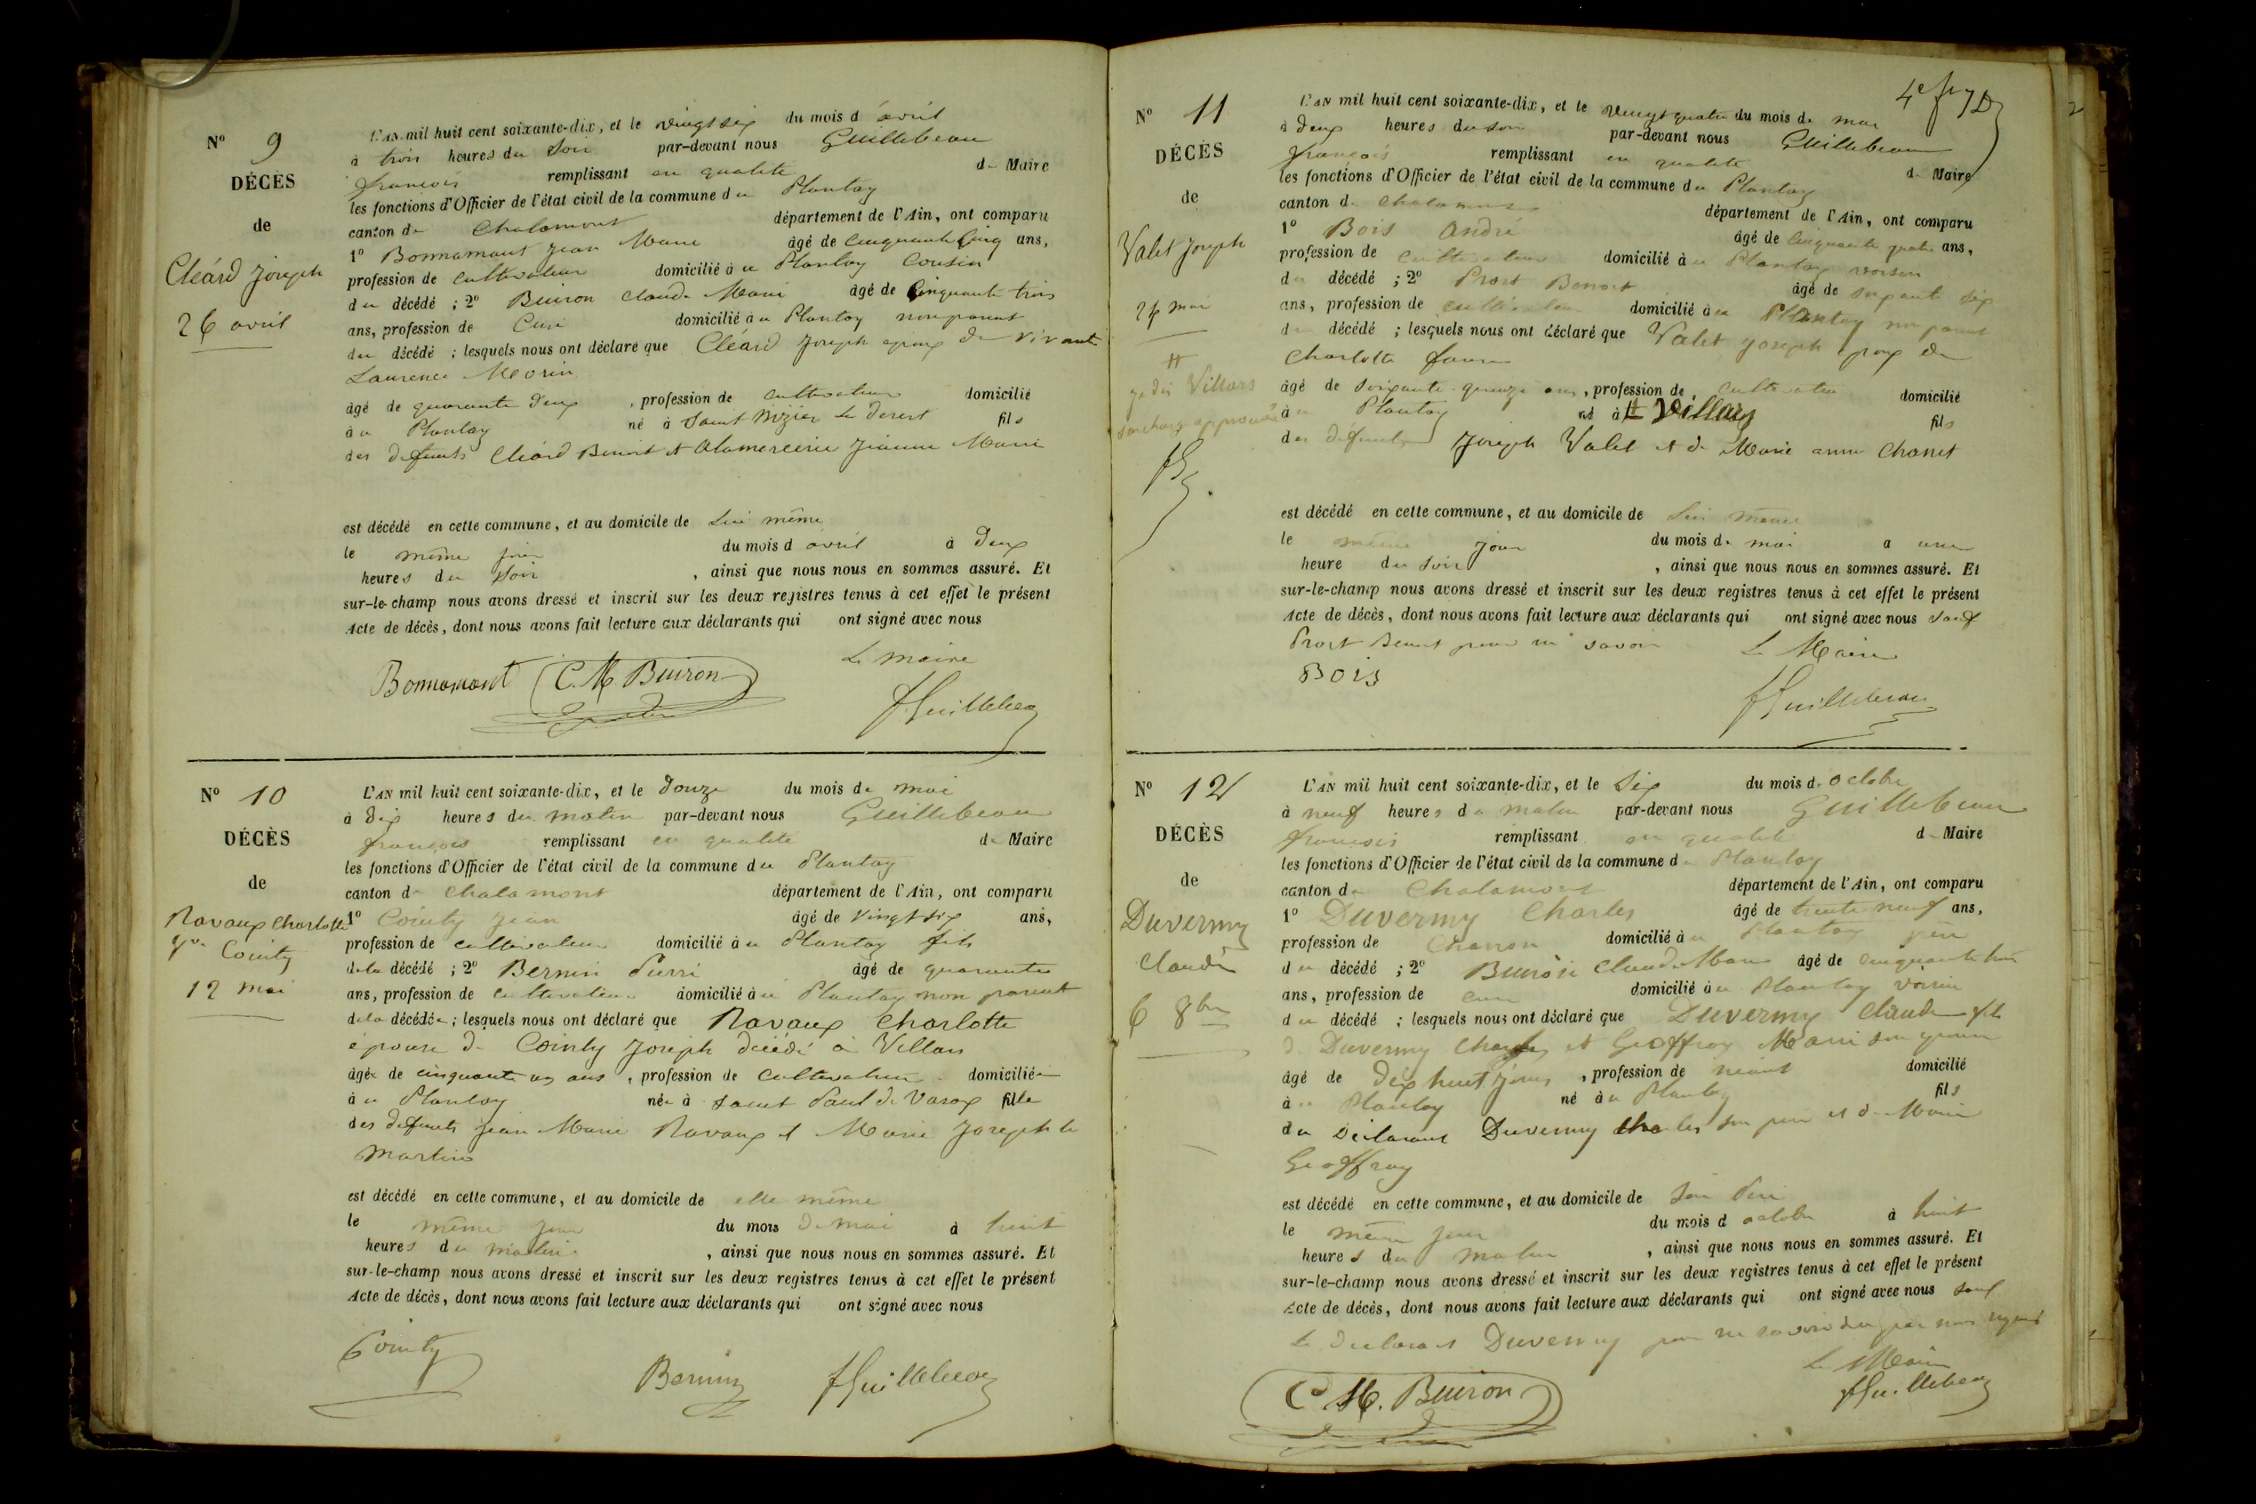 N° 9
DÉCÈS
de
Cléard Joseph
26 avril
L'AN mil huit cent soixante-dix, et le vingt six du mois d'avril
à trois heures du soir par-devant nous Guillebeau
françois remplissant en qualité de Maire
les fonctions d'Officier de l'état civil de la commune du Plantay
canton de Chalamont département de l'Ain, ont comparu
1° Bonnamant Jean Marie âgé de cinquante cinq ans,
profession de cultivateur domicilié à u Plantay cousin
du décédé ; 2° Buiron Claude Marie âgé de cinquante trois
ans, profession de Curé domicilié au Plantay non parent
du décédé ; lesquels nous ont déclaré que Cléard Joseph époux de vivante
Laurence Morin
âgé de quarante deux , profession de cultivateur domicilié
à u Plantay né à Saint Nizier le Desert fils
des défunts Cléard Benoit et Alamercerie Jeanne Marie
est décédé en cette commune, et au domicile de lui même
le même jour du mois d avril à deux
heures du soir , ainsi que nous nous en sommes assuré. Et
sur-le-champ nous avons dressé et inscrit sur les deux registres tenus à cet effet le présent
Acte de décès, dont nous avons fait lecture aux déclarants qui ont signé avec nous
Le maire
Bonnamant C. M. Buiron
f Guillebeau
N° 10
DÉCÈS
de
Ravaux Charlotte
Cointy
12 mai
L'AN mil huit cent soixante-dix, et le douze du mois de mai
à dix heures du matin par-devant nous Guillebeau
françois remplissant en qualité de Maire
les fonctions d'Officier de l'état civil de la commune du Plantay
canton de Chalamont département de l'Ain, ont comparu
1° Cointy Jean âgé de vingt six ans,
profession de cultivateur domicilié à u Plantay fils
de la décédé ; 2° Bernin Pierre âgé de quarante
ans, profession de cultivateur domicilié à u Plantay non parent
de la décédée ; lesquels nous ont déclaré que Ravaux Charlotte
épouse de Cointy Joseph décédé à Villars
âgée de cinquante un ans , profession de cultivateur domiciliée
à u Plantay née à Saint Paul de Varax fille
des défunts Jean Marie Ravaux et Marie Josephte
Martin
est décédé en cette commune, et au domicile de elle même
le même jour du mois de mai à huit
heures du matin , ainsi que nous nous en sommes assuré. Et
sur-le-champ nous avons dressé et inscrit sur les deux registres tenus à cet effet le présent
Acte de décès, dont nous avons fait lecture aux déclarants qui ont signé avec nous
Cointy
Bernin f Guillebeau
N° 11
DÉCÈS
de
Valet Joseph
24 mai
Villars
surcharge approuvée
L'AN mil huit cent soixante-dix, et le vingt quatre du mois de mai
à deux heures du soir par-devant nous Guillebeau
françois remplissant en qualité de Maire
les fonctions d'Officier de l'état civil de la commune du Plantay
canton de Chalamont département de l'Ain, ont comparu
1° Bois André âgé de cinquante quatre ans,
profession de cultivateur domicilié à u Plantay voisin
du décédé ; 2° Prost Benoit âgé de soixante six
ans, profession de cultivateur domicilié à u Plantay non parent
du décédé ; lesquels nous ont déclaré que Valet Joseph époux de
Charlotte
âgé de soixante quinze ans, profession de cultivateur domicilié
à u Plantay né à Villars fils
des défunts Joseph Valet et de Marie anne Chanet
est décédé en cette commune, et au domicile de lui même
le même jour du mois de mai à une
heure du soir , ainsi que nous nous en sommes assuré. Et
sur-le-champ nous avons dressé et inscrit sur les deux registres tenus à cet effet le présent
Acte de décès, dont nous avons fait lecture aux déclarants qui ont signé avec nous sauf
Prost Benoit pour ne savoir Le Maire
Bois
f Guillebeau
N° 12
DÉCÈS
de
Duvermy
Claude
6 8bre
L'AN mil huit cent soixante-dix, et le six du mois d'octobre
à neuf heures du matin par-devant nous Guillebeau
françois remplissant en qualité de Maire
les fonctions d'Officier de l'état civil de la commune du Plantay
canton de Chalamont département de l'Ain, ont comparu
1° Duvermy Charles âgé de trente neuf ans,
profession de Charron domicilié à u Plantay père
du décédé ; 2° Buiron Claude Marie âgé de cinquante trois
ans, profession de curé domicilié à u Plantay voisin
du décédé ; lesquels nous ont déclaré que Duvermy Claude fils
de Duvermy Charles et Geoffroy Marie
âgé de dix huit jours , profession de néant domicilié
à u Plantay né à u Plantay fils
du Déclarant Duvermy Charles son père et de Marie
Geoffray
est décédé en cette commune, et au domicile de son Père
le même jour du mois d octobre à huit
heures du matin , ainsi que nous nous en sommes assuré. Et
sur-le-champ nous avons dressé et inscrit sur les deux registres tenus à cet effet le présent
Acte de décès, dont nous avons fait lecture aux déclarants qui ont signé avec nous sauf
le déclarant Duvermy pour ne savoir
Le Maire
C. M. Buiron f Guillebeau